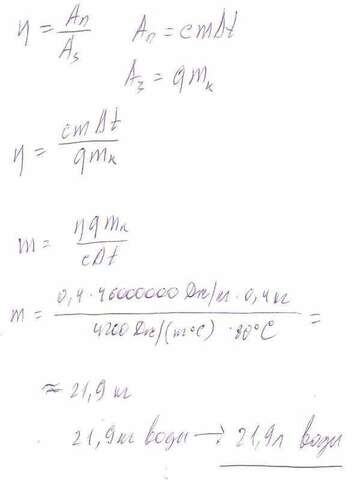 η = Aп/Aз    Aп = cmΔt
Aз = qmк
η = cmΔt/qmк
m = ηqmк/cΔt
m = 0,4 · 46000000 Дж/кг · 0,4 кг / 4200 Дж/(кг°C) · 80°C =
≈ 21,9 кг
21,9 кг води → 21,9 л води